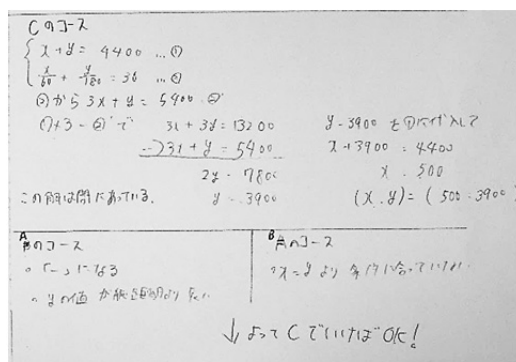 Cのコース
x+y=4400 …①
x/60 + y/180 = 30 …②
②から 3x+y=5400 …②'
①×3-②'で 3x+3y=13200
-)3x+y=5400
2y=7800
y=3900
この解は問にあっている。
y=3900を①に代入して
x+3900=4400
x=500
(x,y)=(500,3900)
Aのコース
◦「-」になる
◦yの値が総距離より
Bのコース
◦x=yより条件に合っていない。
↓よってCでいけばOK!